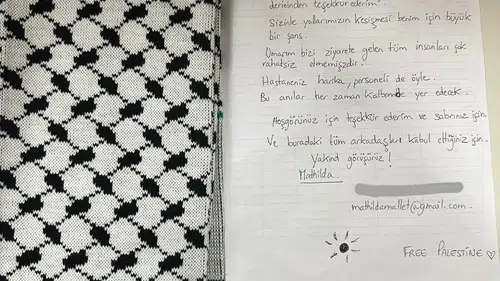 derininden teşekkür ederim.
Sizinle yollarımızın kesişmesi benim için büyük
bir şans.
Umarım bizi ziyarete gelen tüm insanları çok
rahatsız etmemişzdir.
Hastaneniz harika, personeli de öyle.
Bu anılar her zaman kalbomde yer edecek.
Hoşgörünüz için teşekkür ederim ve sabrınız için.
Ve buradaki tüm arkadaşları kabul ettiğiniz için.
Yakınd görüşürüz!
Mathilda.
mathildamallet@gmail.com.
FREE PALESTINE